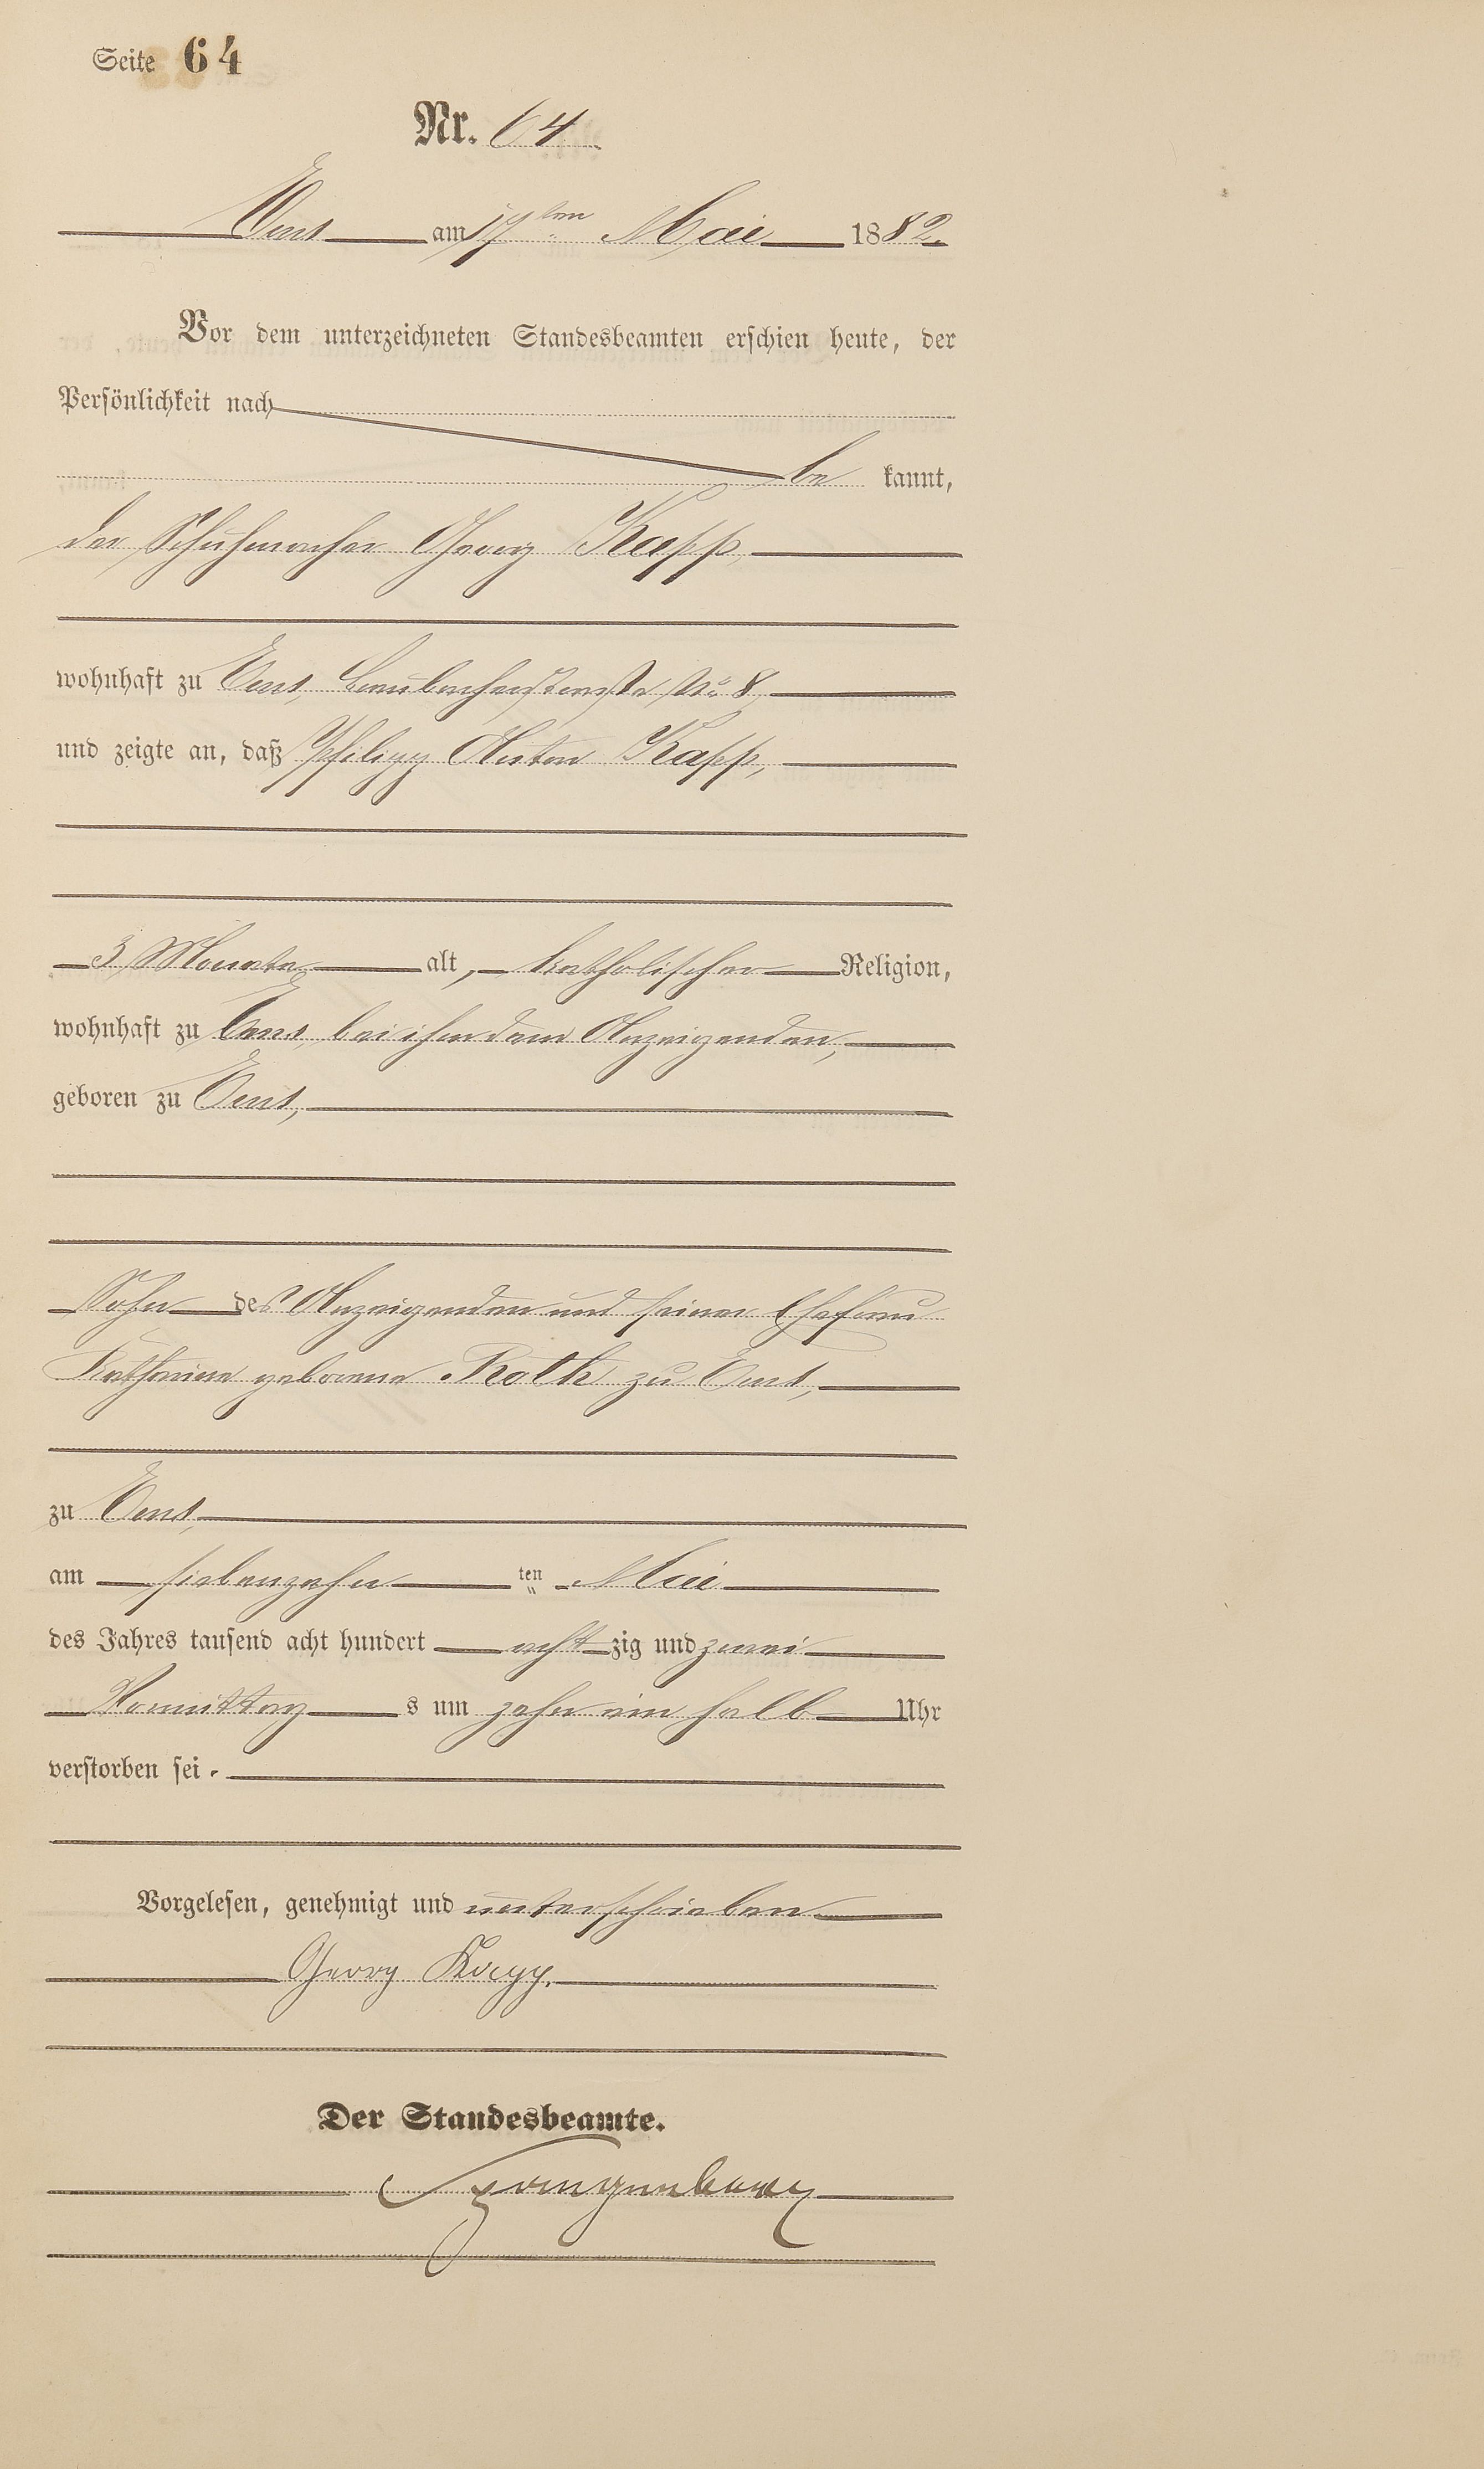 Seite 64
Nr. 64
Ems am 17ten Mai 1882.
Vor dem unterzeichneten Standesbeamten erschien heute, der
Persönlichkeit nach
be kannt,
der Schuhmacher Georg Kapp,
wohnhaft zu Ems, No 8,
und zeigte an, daß Philipp Anton Kapp,
3 Monate alt, katholischer Religion,
wohnhaft zu Ems, bei ihm dem Anzeigenden,
geboren zu Ems,
Sohn des Anzeigenden und seiner Ehefrau
Katharina geborene Roth zu Ems,
zu Ems,
am siebenzehn ten Mai
des Jahres tausend acht hundert acht zig und zwei
Vormittag s um zehn ein halb Uhr
verstorben sei.
Vorgelesen, genehmigt und unterschrieben
Georg Kapp.
Der Standesbeamte.